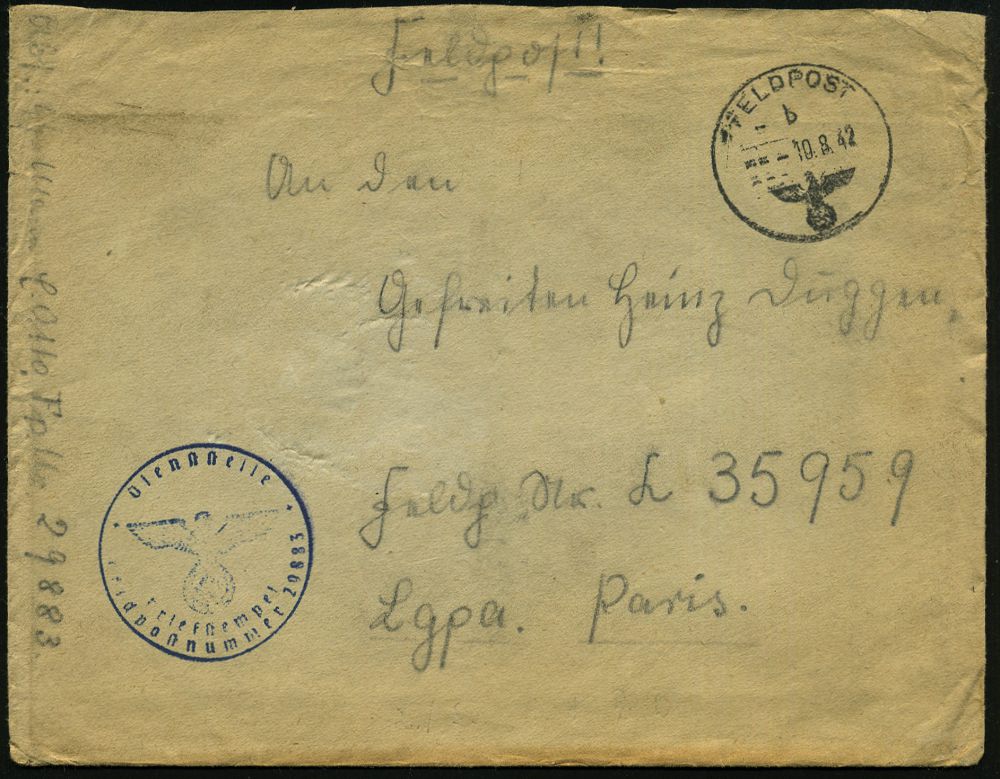 Feldpost!
FELDPOST
b
10.8.42
An den
Gefreiten Heinz Duggen,
Feldp Nr. L 35959
Lgpa. Paris.
Dienststelle
Briefstempel
Feldpostnummer 29883
Otto 29883